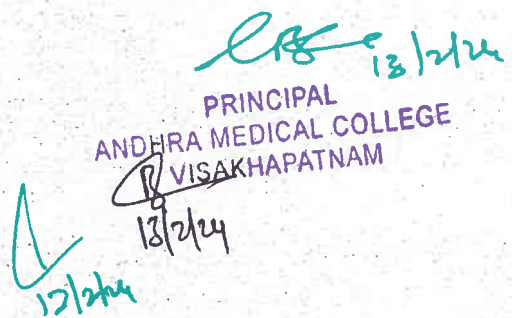 13/2/24
PRINCIPAL
ANDHRA MEDICAL COLLEGE
VISAKHAPATNAM
13/2/24
12/2/24